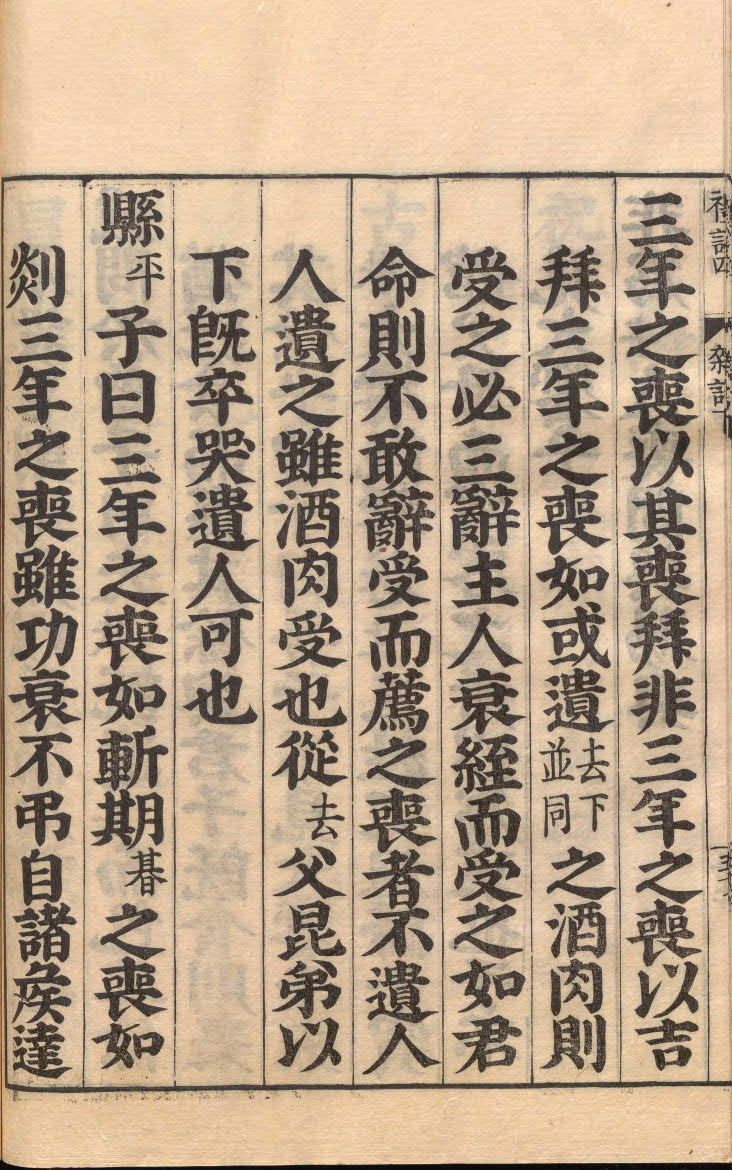 禮記四 雜記下
三年之喪以其喪拜非三年之喪以吉
拜三年之喪如或遺去下並同之酒肉則
受之必三辭主人衰絰而受之如君
命則不敢辭受而薦之喪者不遺人
人遺之雖酒肉受也從去父昆弟以
下旣卒哭遺人可也
縣平子曰三年之喪如斬期朞之喪如
剡三年之喪雖功衰不弔自諸矦達